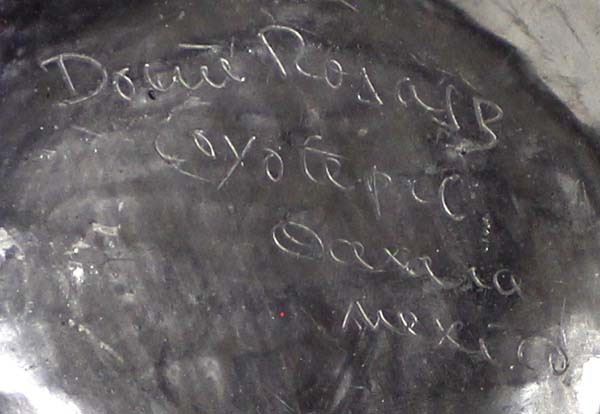 Doña Rosa
Coyotepec
Oaxaca
Mexico